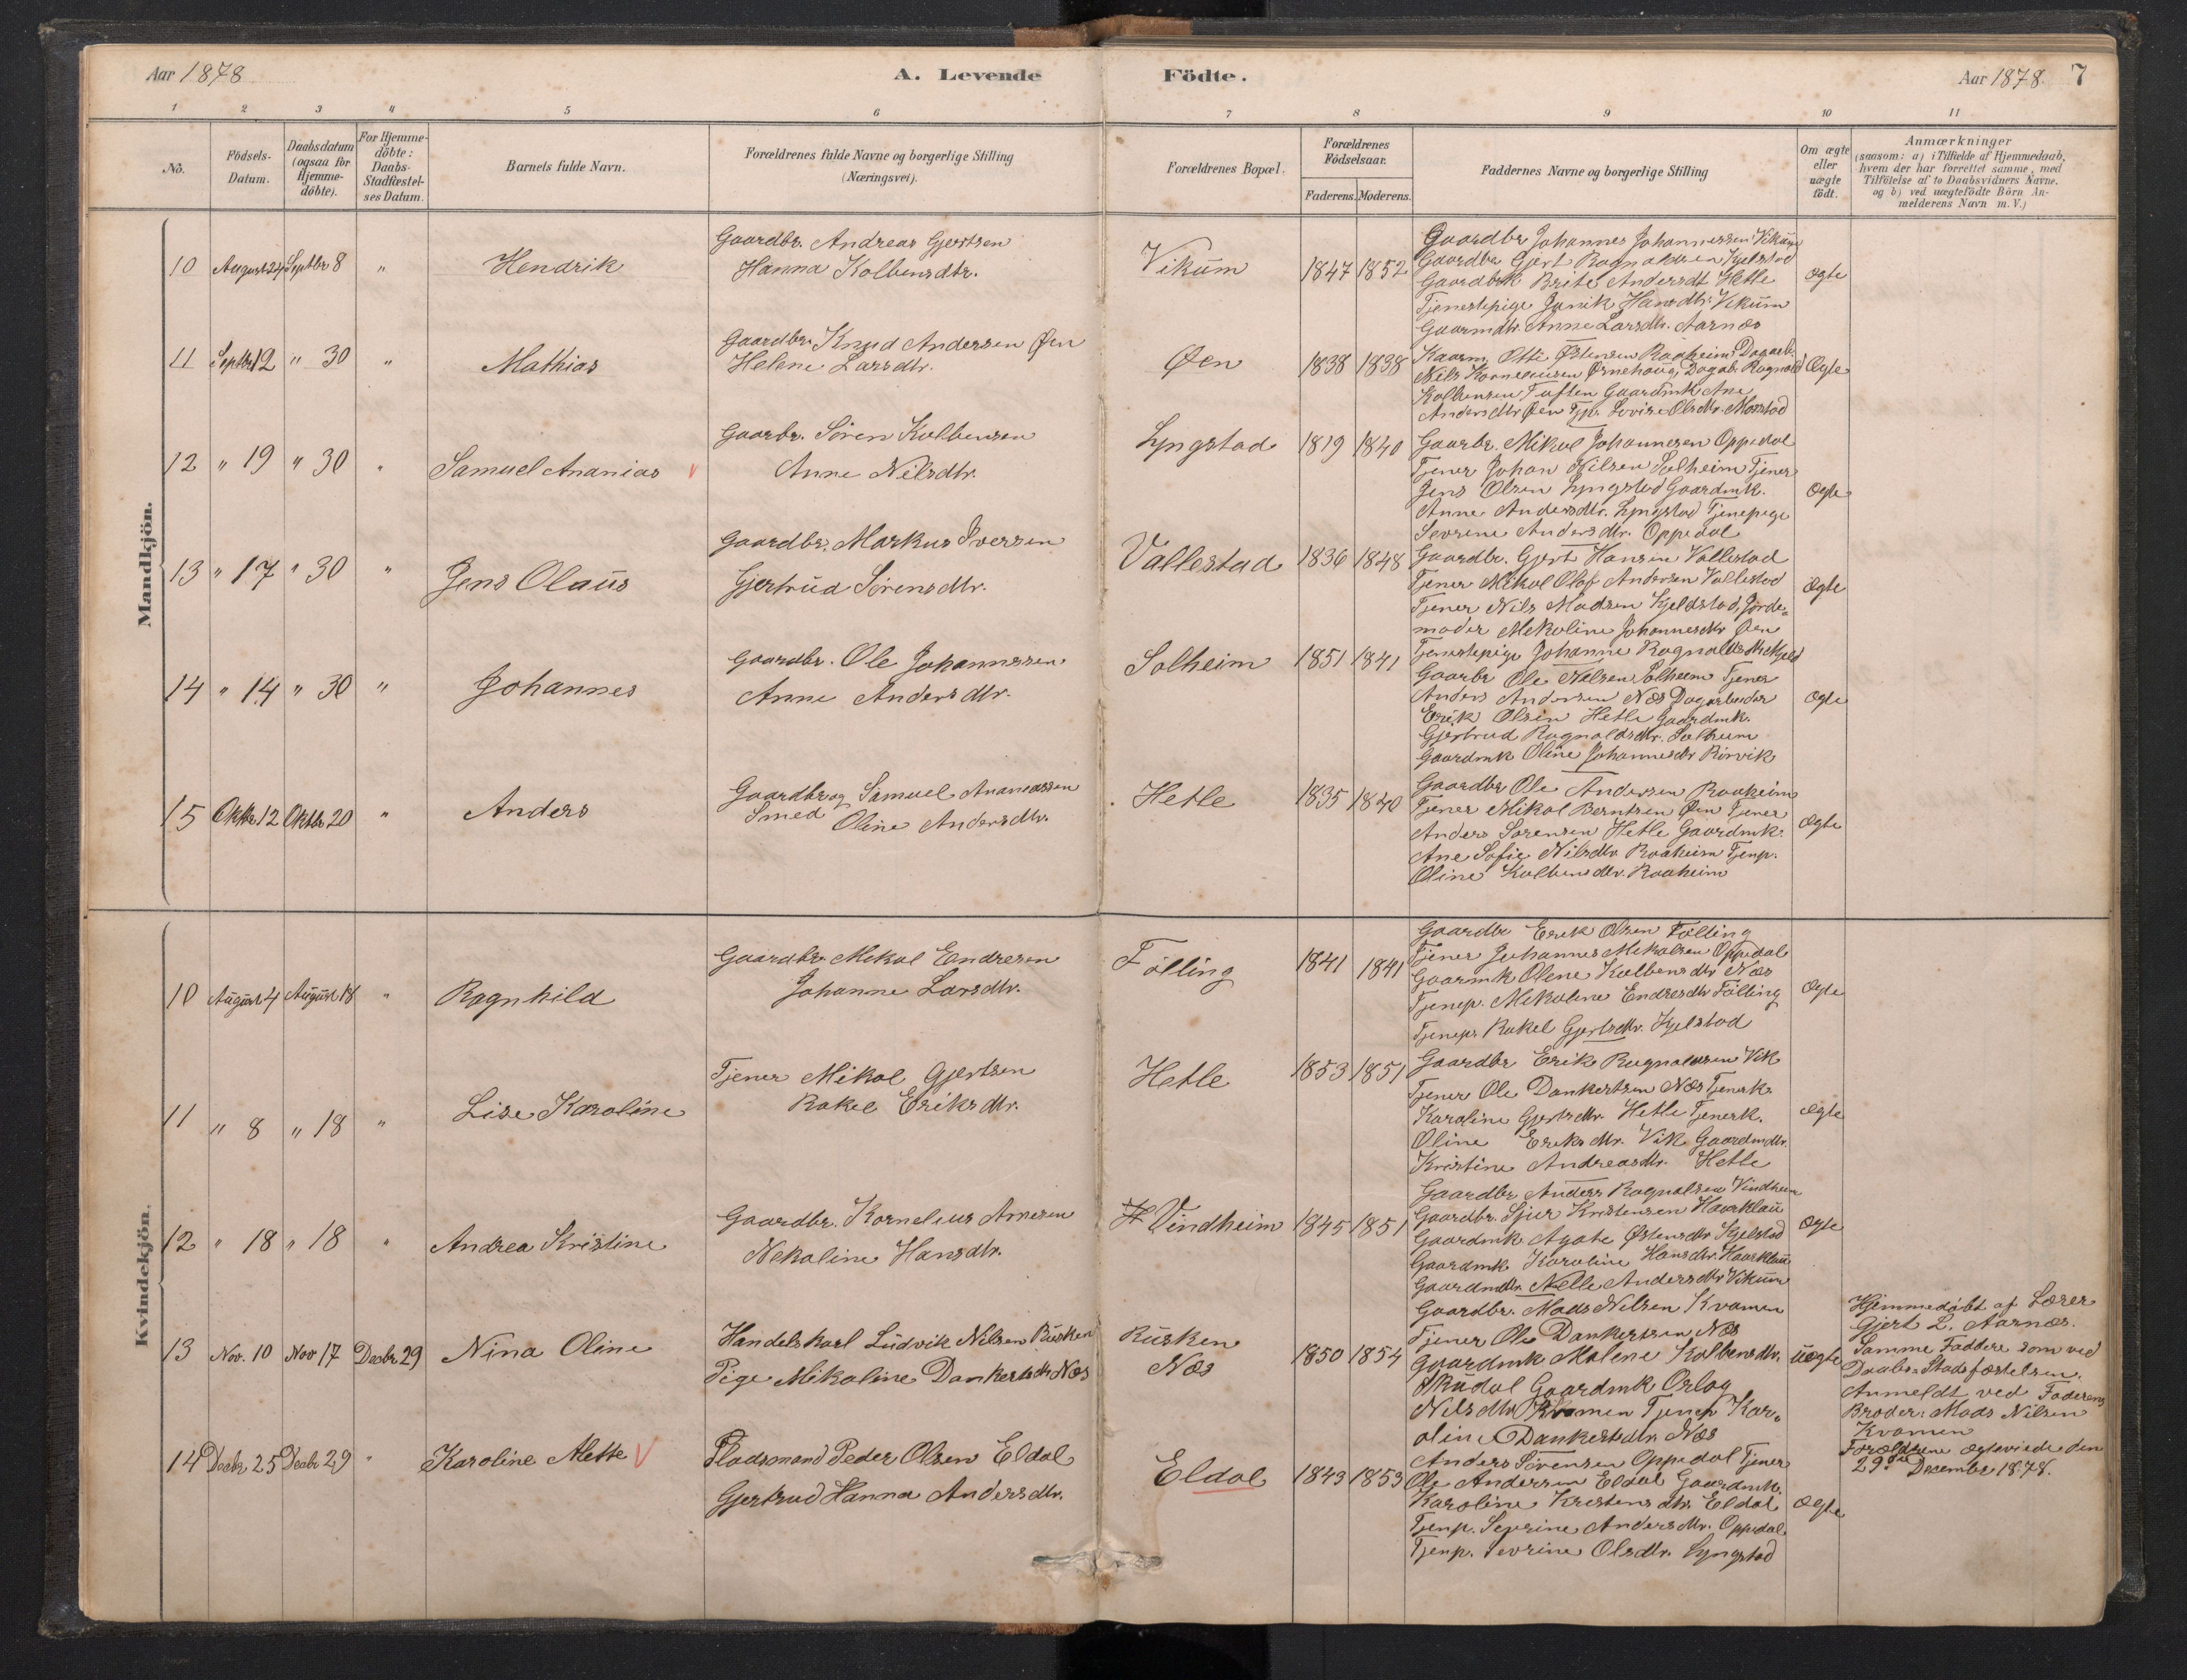 Aar 1878
A. Levende
Födte.
Aar 1878. 7
1 2 3 4 5 6 7 8 9 10 11
No.
Födsels-
Datum.
Daabsdatum
(ogsaa for
Hjemme-
döbte).
For Hjemme-
döbte:
Daabs-
Stadfæstel-
ses Datum.
Barnets fulde Navn.
Forældrenes fulde Navne og borgerlige Stilling
(Næringsvei).
Forældrenes Bopæl.
Forældrenes
Födselsaar.
Faderens. Moderens.
Faddernes Navne og borgerlige Stilling
Om ægte
eller
uægte
födt.
Anmærkninger
(saasom: a) i Tilfælde af Hjemmedaab,
hvem der har forrettet samme, med
Tilföielse af to Daabsvidners Navne.
og b) ved uægtefödte Börn An-
melderens Navn m. V.)
Mandkjön.
10 August 24 Septbr 8 " Hendrik
Gaardbr. Andreas Gjertsen
Hanna Kolbensdtr.
Vikum 1847 1852
Gaardbr Johannes Johannessen Vikum
Gaardbr Gjert Ragnaldsen Kjelstad
Gaardbrk Brite Andersdt Hetle
Tjenestepige Janik Hansdtr. Vikum
Gaarmdtr. Anne Larsdtr. Aarnæs
ægte
11 Septbr 12 " 30 " Mathias
Gaardbr. Knud Andersen Øen
Helene Larsdtr.
Øen 1838 1838
Kaarm. Otte Østensen Raaheim Dagarb.
Nils Korneliusen Ørnehaug, Dagab. Ragnald
Kolbensen Tuften Gaardmk Ane
Andersdtr Øen Tjp. Lovise Olsdtr.
Ægte
12 " 19 " 30 " Samuel Ananias v
Gaarbr. Sören Kolbensen
Anne Nilsdtr.
Lyngstad 1819 1840
Gaarbr. Mikal Johannesen Oppedal
Tjener Johan Nilsen Solheim Tjener
Jens Olsen Lyngstad Gaardmk.
Anne Andersdtr. Lyngstad Tjenepige
Sevrine Andersdtr. Oppedal
Ægte
13 " 17 " 30 " Jens Olaus
Gaardbr. Markus Iversen
Gjertrud Sörensdtr.
Vallestad 1836 1848
Gaardbr. Gjert Hansen Vallestad
Tjener Mikal Olaf Andersen Vallestad
Tjener Nils Madsen Kjeldstad, Jorde-
moder Mekaline Johannesdtr Øen
Tjenestepige Johanne Ragnaldsdtr
Ægte
14 " 14 " 30 " Johannes
Gaardbr. Ole Johannessen
Anne Andersdtr.
Solheim 1851 1841
Gaarbr Ole Nilsen Solheim Tjener
Anders Andersen Næs Dagarbeider
Erik Olsen Hetle Gaardmk.
Gjertrud Ragnaldsdtr. Solheim
Gaardmk Oline Johannesdtr Rörvik
Ægte
15 Oktbr 12 Oktbr 20 " Anders
Gaardbr og Samuel Ananiassen
Smed Oline Andersdtr.
Hetle 1835 1840
Gaardbr Ole Andersen Raaheim
Tjener Mikal Berntsen Øen Tjener
Anders Sörensen Hetle Gaardmk.
Ane Sofie Nilsdtr Raaheim Tjenp.
Oline Kolbensdtr. Raaheim
Ægte
Kvindekjön.
10 August 4 August 18 " Ragnhild
Gaardbr. Mekal Endresen
Johanne Larsdtr.
Fölling 1841 1841
Gaardbr Erik Olsen Fölling
Tjener Johannes Mekalsen Oppedal
Gaarmk Olene Kolbensdtr Næs
Tjenep. Mekaline Endresdtr Fölling
Tjenep. Rakel Gjertsdtr. Kjelstad
Ægte
11 " 8 " 18 " Lise Karoline
Tjener Mikal Gjertsen
Rakel Eriksdtr.
Hetle 1853 1851
Gaardbr Erik Ragnaldsen Vik
Tjener Ole Dankertsen Næs Tjenerk.
Karoline Gjertsdtr. Hetle Tjenerk.
Oline Eriksdtr. Vik Gaardmdtr.
Kristine Andreasdtr. Hetle
Ægte
12 " 18 " 18 " Andrea Kristine
Gaardbr. Kornelius Arnesen
Nekaline Hansdtr.
Vindheim 1845 1851
Gaardbr Anders Ragnalsen Vindheim
Gaardbr. Sjur Kristensen Haarklau
Gaardmk Agate Østensdtr Kjelstad
Gaardmk Karoline Hansdtr. Haarklau
Gaardmdtr. Nelle Andersdtr Vikum
Ægte
13 Nov. 10 Nov 17 Decbr 29 Nina Oline
Handelskarl Ludvik Nilsen Rusken
Pige Mikaline Dankertsdtr Næs
Rusken
Næs
1850 1854
Gaardbr. Mads Nilsen Kvamen
Tjener Ole Dankertsen Næs
Gaardmk Malene Kolbensdtr.
Skudal Gaardmk Orlog
Nilsdtr Kvamen Tjenep Kar-
oline Dankertsdtr. Næs
uægte
Hjemmedöbt af Lærer
Gjert L. Aarnæs.
Samme Faddere som ved
Daabs-Stadfæstelsen.
Anmeldt ved Faderens
Broder: Mads Nilsen
Kvamen
Forældrene ægteviede den
29de December 1878.
14 Decbr 25 Decbr 29 " Karoline Mette V
Pladsmand Peder Olsen Eldal
Gjertrud Hanna Andersdtr.
Eldal 1843 1853
Anders Sörensen Oppedal Tjener
Ole Andersen Eldal Gaardmk.
Karoline Kristensdtr Eldal
Tjenp. Severine Andersdtr. Oppedal
Tjenp. Sevrine Olsdtr. Lyngstad
Ægte